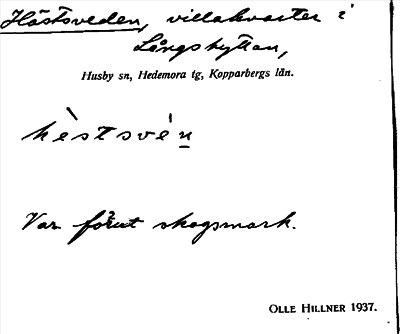 Hästsveden, villakvarter i
Långshyttan,
Husby sn, Hedemora tg, Kopparbergs län.
hèstsvén
Var förut skogsmark.
OLLE HILLNER 1937.